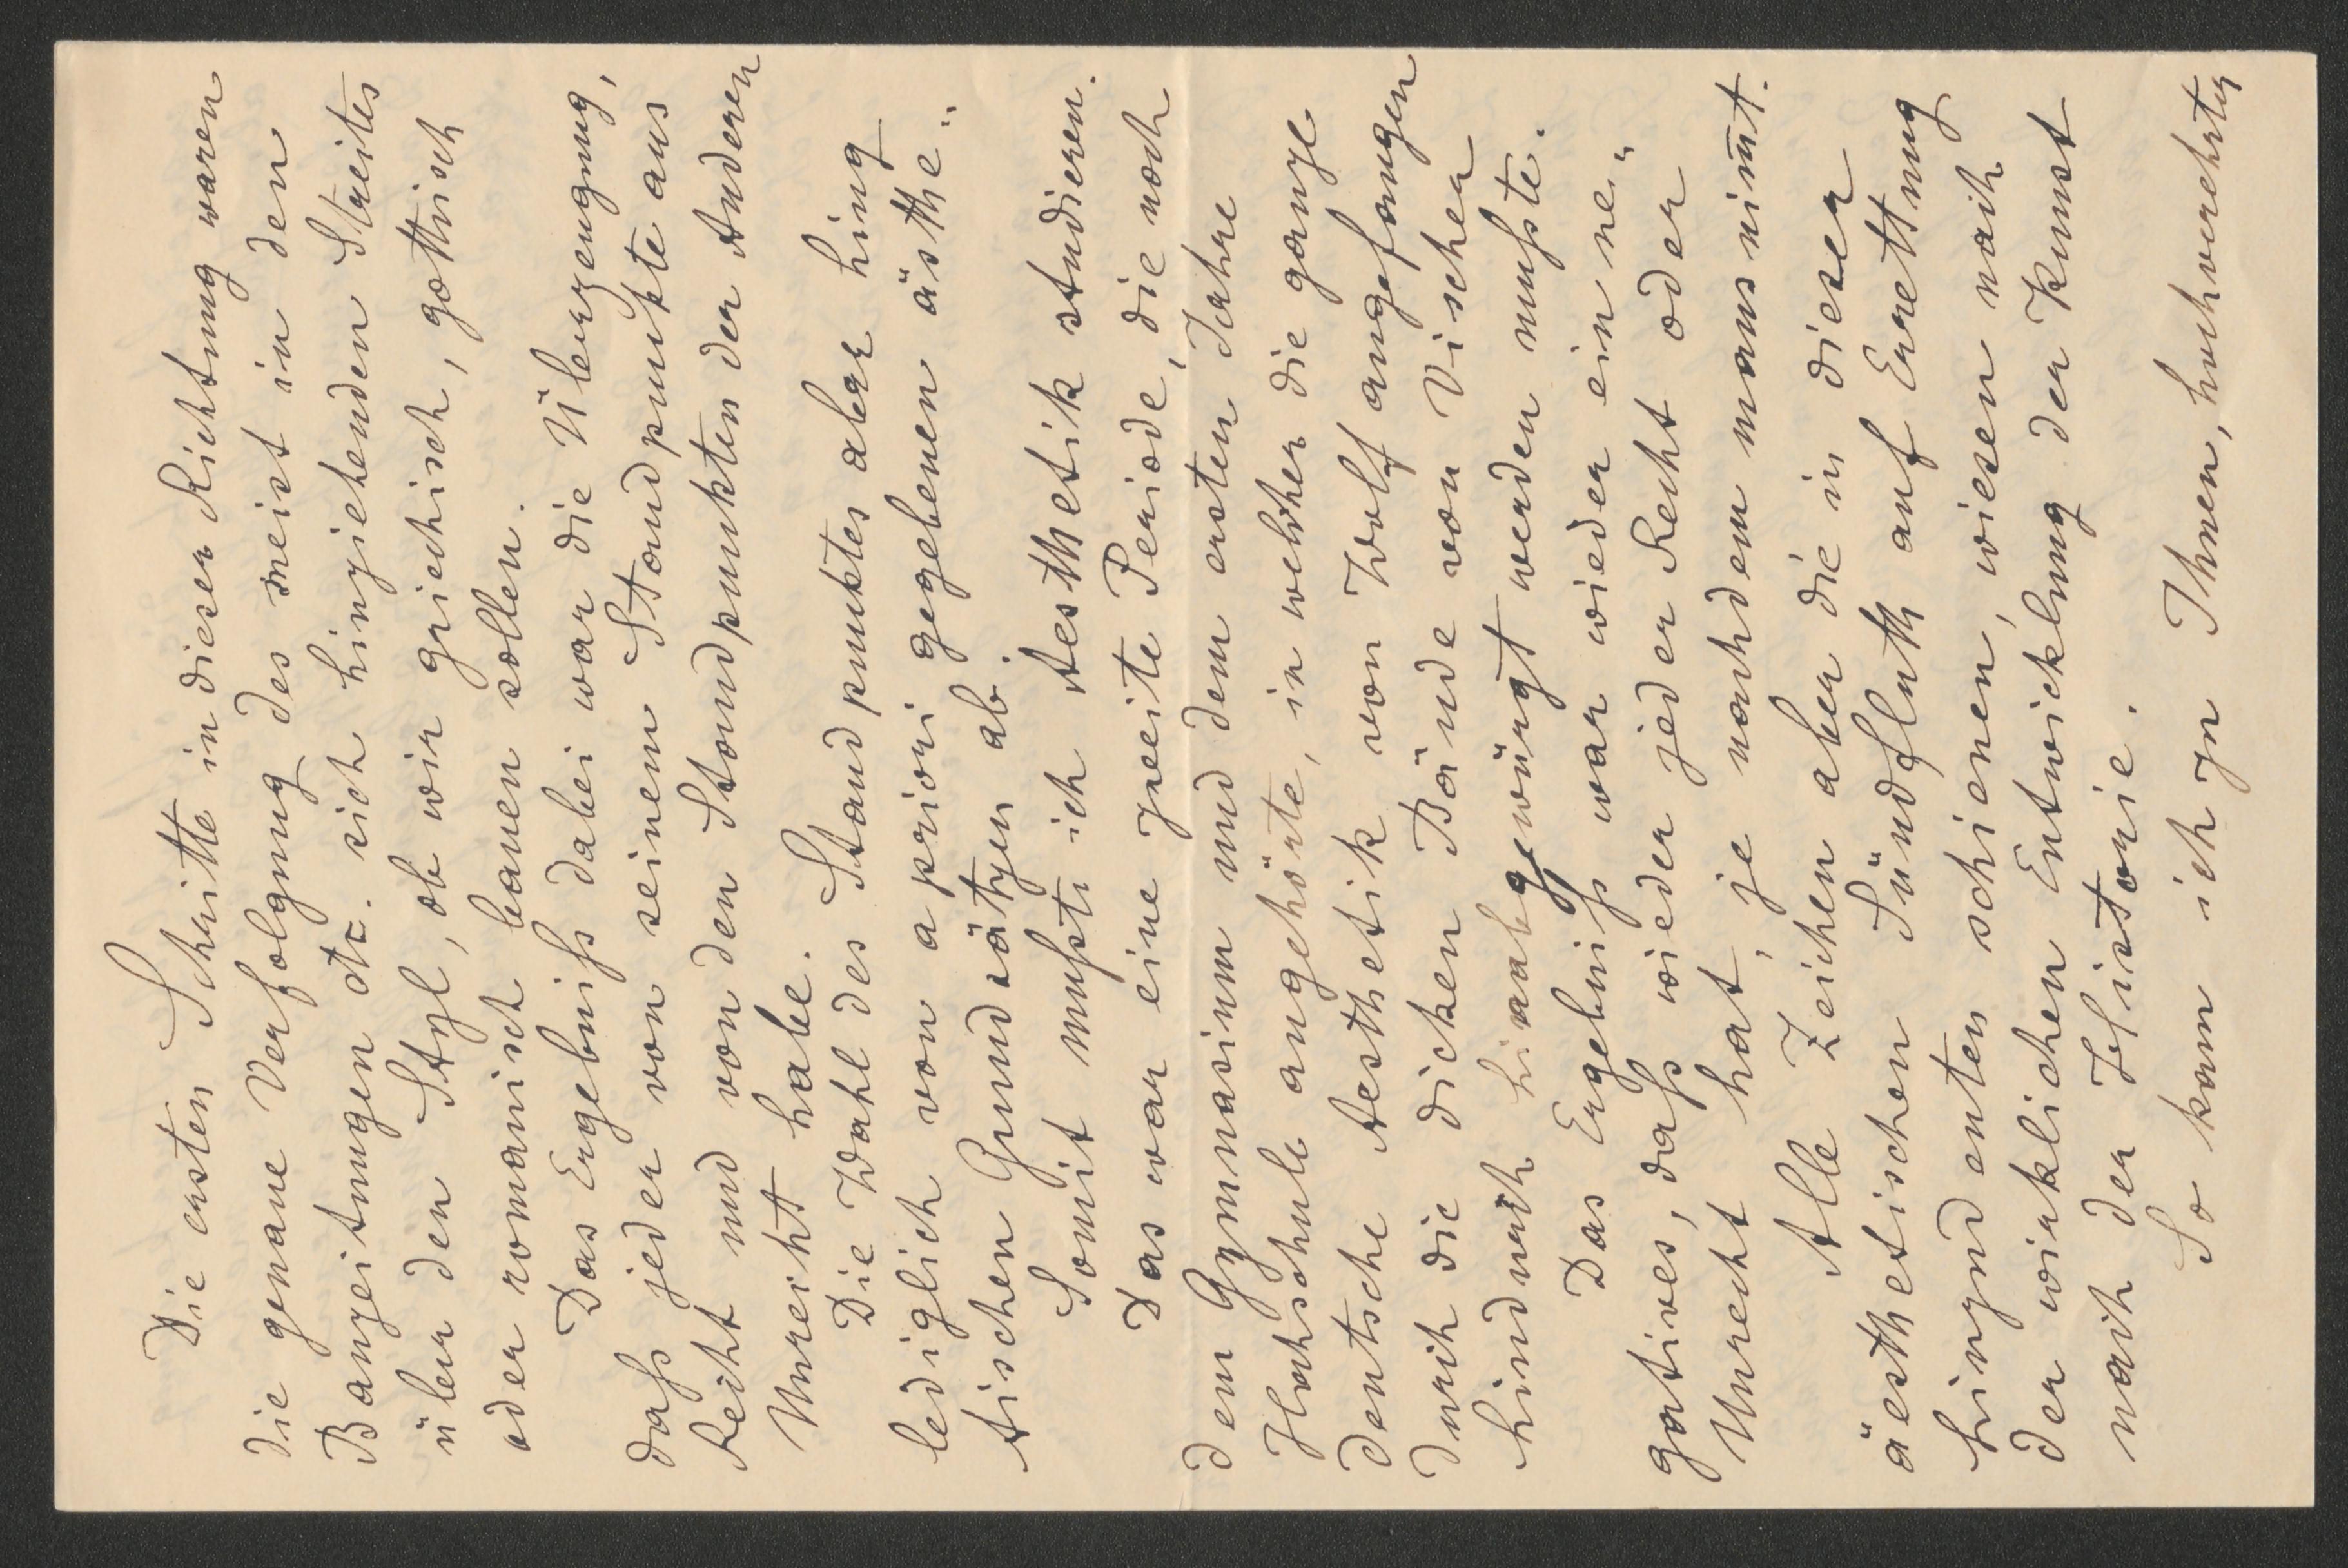 Die ersten Schritte in dieser Richtung waren
die genaue Verfolgung des meist in den
Bauzeitungen etc. sich hinziehenden Streites
über den Styl, ob wir griechisch, gothisch
oder romanisch bauen sollen.
Das Ergebniß dabei war die Überzeugung,
daß jeder von seinem Standpunkte aus
Recht und von den Standpunkten der Anderen
Unrecht habe.
Die Wahl des Standpunktes aber hing
lediglich von a priori gegebenen ästhe„
tischen Grundsätzen ab.
Somit mußte ich Aesthetik studieren.
Das war eine zweite Periode, die noch
dem Gymnasium und dem ersten Jahre
Hochschule angehörte, in welcher die ganze
deutsche Aesthetik von Wolf angefangen
durch die dicken Bände von Vischer
hindurch hinabgewürgt werden mußte.
Das Ergebniß war wieder ein ne„
gatives, daß wieder jeder Recht oder
Unrecht hat, je nachdem mans nim̄t.
Alle Zeichen aber die in dieser
äesthetischen Sündfluth auf Errettung
hinzudeuten schienen, wiesen nach
der wirklichen Entwicklung der Kunst
nach der Historie.
So kam ich zu Ihnen, hochverehrter